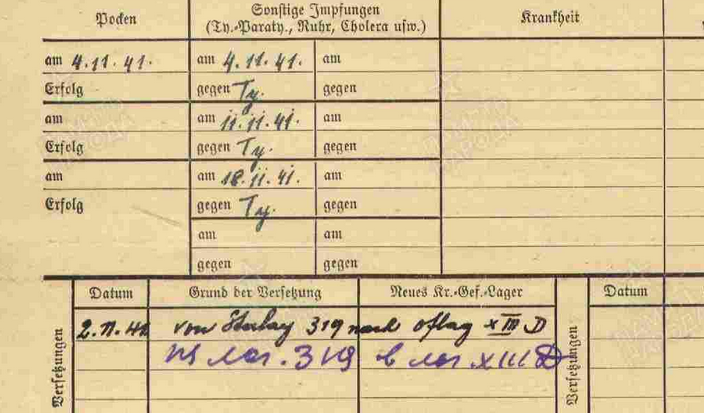 Pocken
Sonstige Impfungen
(Ty.-Paraty., Ruhr, Cholera usw.)
Krankheit
am 4.11.41. am 4.11.41. am
Erfolg gegen Ty. gegen
am am 11.11.41. am
Erfolg gegen Ty. gegen
am am 18.11.41. am
Erfolg gegen Ty. gegen
am am
gegen gegen
Versetzungen
Datum Grund der Versetzung Neues Kr.-Gef.-Lager
von Stalag 319 nach Oflag XIII D
из лаг. 319 в лаг XIII D
Versetzungen
Datum
ПАМЯТЬ НАРОДА